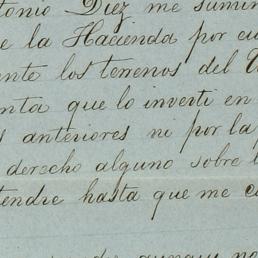 tonio Diez me sumin
e la Hacienda por cu
ente los terrenos del
enta que lo inverti en
s anteriores ni por la
derecho alguno sobre l
tendre hasta que me c
aunque no